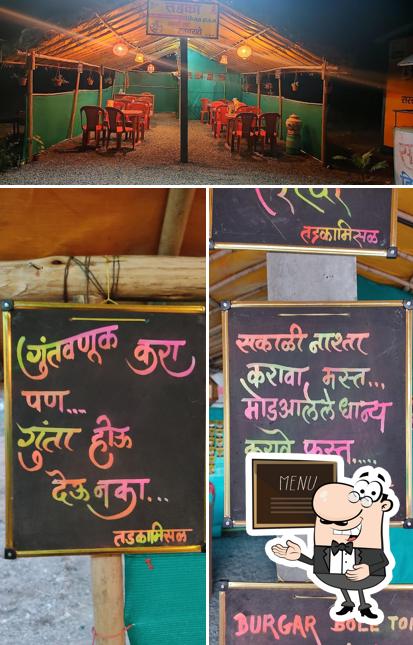 तडका
गुंतवणूक करा
पण....
गुंता होऊ
देऊ नका...
तडकामिसळ
तडकामिसळ
सकाळी नाश्ता
करावा मस्त...
मोडआलेले धान्य
करावे फस्त.....
MENU
BURGAR